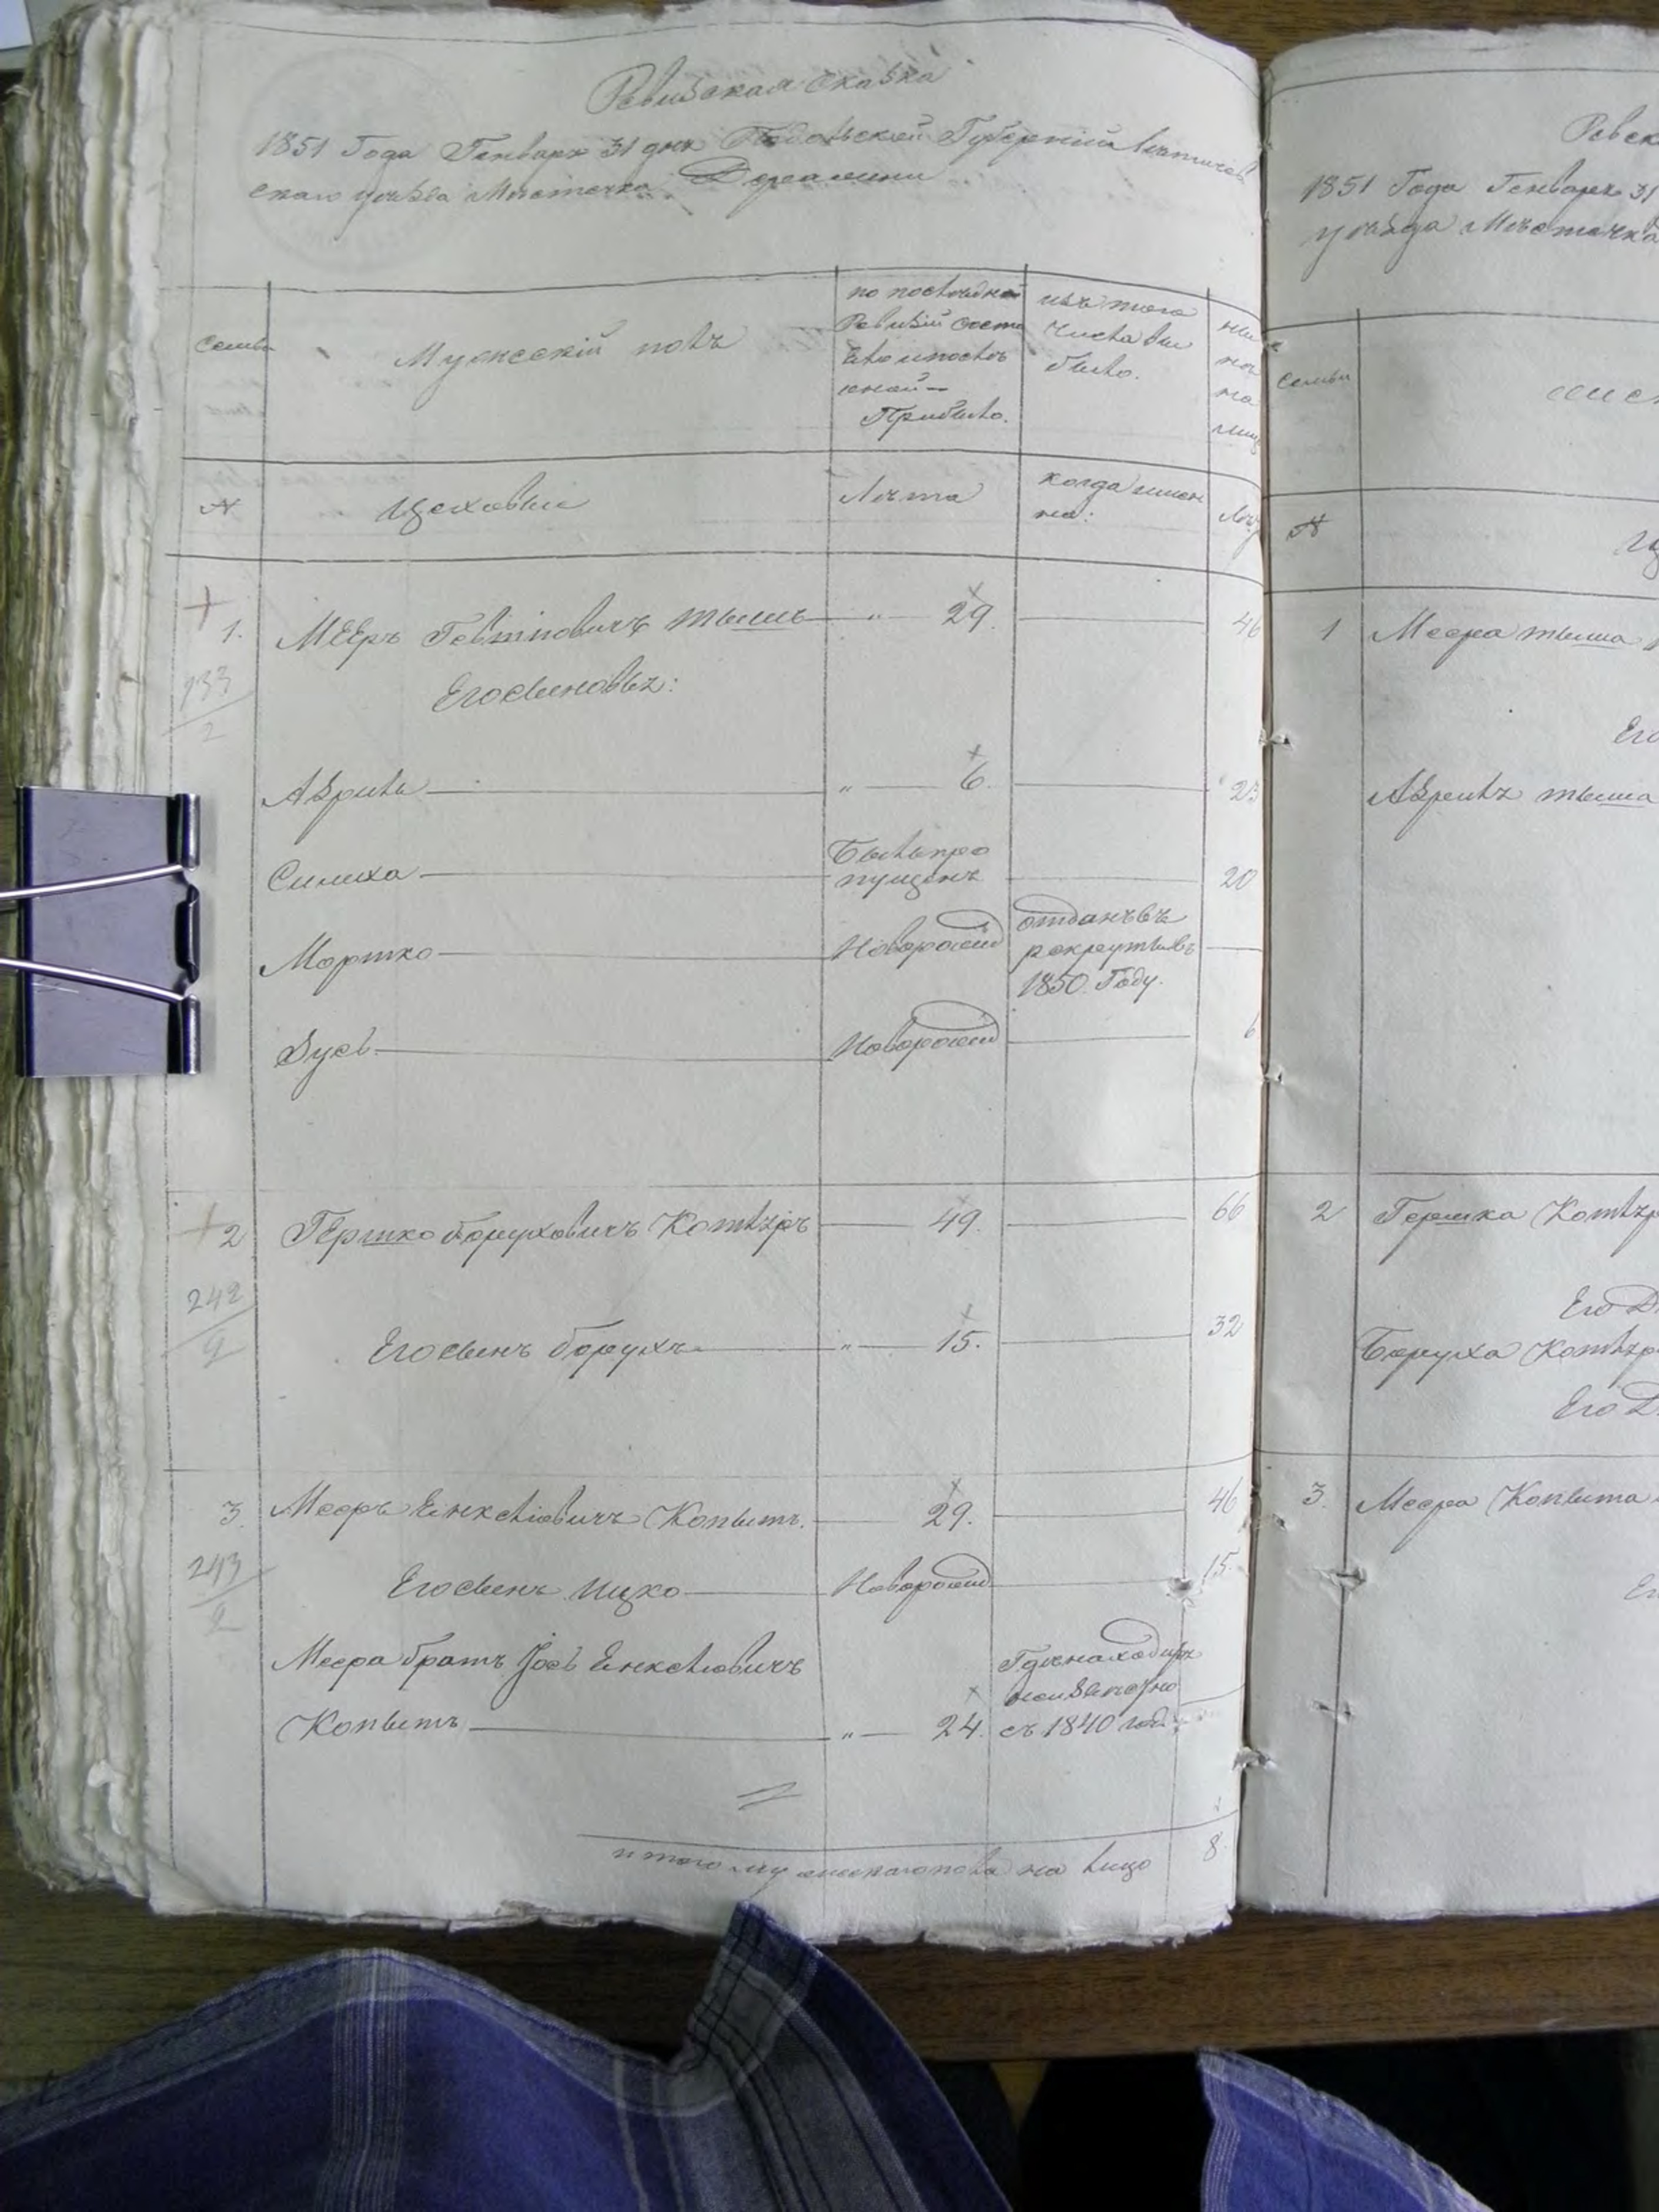 Ревизская сказка
1851 Года Генваря 31 дня Подольской Губерніи Летичев
скаго уѣзда Мѣстечка Деражни
семьи
Мужескій полъ
по послѣдней
Ревизіи состо
яло и послѣ
оной
Прибыло.
изъ того
числа вы
было.
ны
нѣ
на
лицо
№
Цеховые
Лѣта
когда имен
но:
Лѣт
1.
Мееръ Гевтповичъ Тышъ
" 29.
46
233
2
Его сыновья:
Азриль
" 6.
23
Симха
Былъ про
пущенъ
20
Мортко
Новорожд
отданъ въ
рекруты въ
1850 Году.
Зусь
Новорожд
6
2
Гершко Боруховичъ Котляръ
49.
66
242
2
Его сынъ Борухъ
" 15.
32
3.
Мееръ Енкелiовичъ Копытъ.
29.
46
243
2
Его сынъ Ицко
Новорожд
15.
Меера братъ Іось Енкелiовичъ
Копытъ
" 24.
Где находитъ
неизвестно
съ 1840 года
итого мужескаго пола на лицо
8.
1851 Года Генваря 31
уѣзда Мѣстечка
семьи
№
1
Меера Тыша
Его
Азриль Тыша
2
Гершка Котляр
Его
Боруха Котляр
Его
3.
Меера Копыта